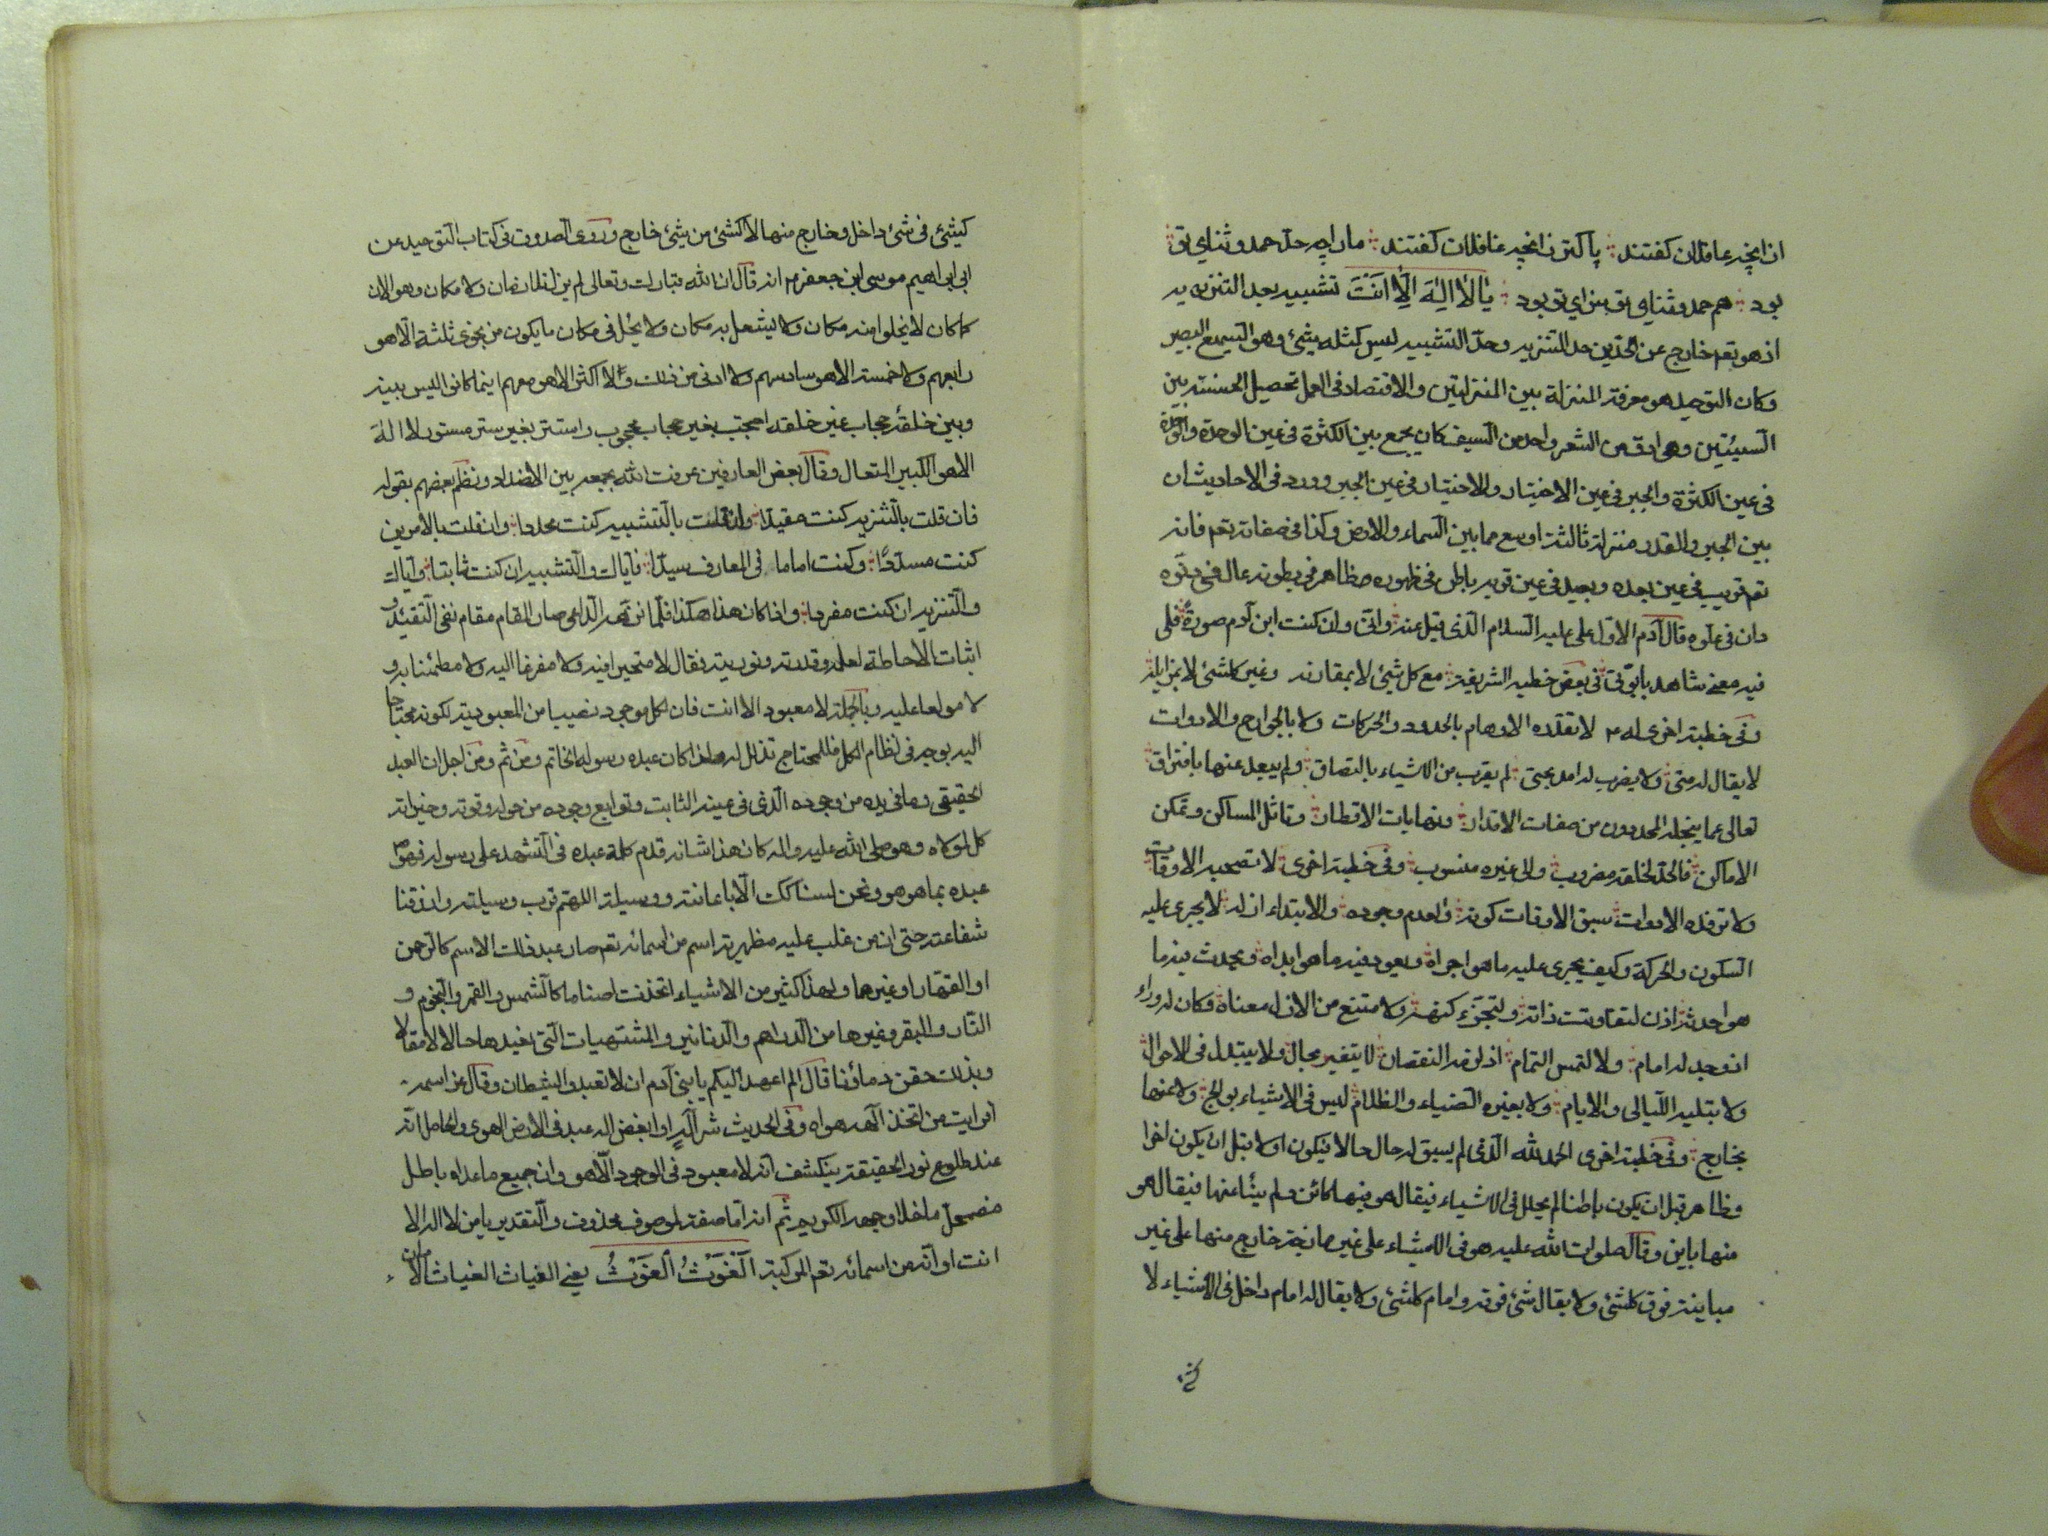 از انچه عاقلان كفتند پاكتر زانچه غافلان كفتند ماراچه حد حمد وثناى تو
بود هم حمد وثناى تو سزاى تو بود يا لا اله الا انت تشبيه بعد التنزيه يد
اذ هو تعم خارج عن الحدين حد التنزيه وحد التشبيه ليس كمثله شئ وهو السميع البصير
وكان التوحيد هو معرفة المنزلة بين المنزلتين والاقتصاد فى العمل تحصيل الحسنة بين
السيئتين وهى ادق من الشعر واحد من السيف كان يجمع بين الكثرة فى عين الوحدة والوحدة
فى عين الكثرة والجبر فى عين الاختيار والاختيار فى عين الجبر وورد فى الاحاديث ان
بين الجبر والقدر منزلة ثالثة اوسع مما بين السماء والارض وكذا فى صفاته تعم فانه
تعم قريب فى عين بعده وبعيد فى عين قربه باطن فى ظهوره ظاهر فى بطونه عال فى دنوه
دان فى علوه قال آدم الاول على عليه السلام الذى قيل عنه وانى وان كنت ابن آدم صورة فلى
فيه معنى شاهد بابوتى فى بعض خطبه الشريفة مع كل شئ لا بمقارنه وغير كلشئ لا بمزايلة
وفى خطبة اخرى له ۴ لا تقدره الاوهام بالحدود والحركات ولا بالجوارح والادوات
لا يقال له متى ولا يضرب له امد بحتى لم يقرب من الاشياء بالتصاق ولم يبعد عنها بافتراق
تعالى عما ينحله المحددون من صفات الاقدار ونهايات الاقطار وتاثل المساكن وتمكن
الاماكن فالحد لخلقه مضروب والى غيره منسوب وفى خطبة اخرى لا تصحبه الاوقات
ولا ترفده الادوات سبق الاوقات كونه والعدم وجوده والابتداء ازله لا يجرى عليه
السكون والحركة وكيف يجرى عليه ما هو اجراه ويعود فيه ما هو ابداه ويحدث فيه ما
هو احدثه اذن لتفاوتت ذاته ولتجزء كنهه ولامتنع من الازل معناه وكان له وراء
اذ وجد له امام ولالتمس التمام اذ لزمه النقصان لا يتغير بحال ولا يتبدل فى الاحوال
ولا تبليه الليالى والايام ولا يغيره الضياء والظلام ليس فى الاشياء بوالج ولا عنها
بخارج وفى خطبة اخرى الحمد لله الذى لم يسبق له حال حالا فيكون اولا قبل ان يكون اخرا
وظاهر قبل ان يكون باطنا لم يحلل فى الاشياء فيقال هو فيها كائن ولم ينأ عنها فيقال هو
منها باين وقال صلوات الله عليه هو فى الاشياء على غير ممازجة خارج منها على غير
مباينة فوق كلشئ ولا يقال شئ فوقه وامام كلشئ ولا يقال له امام داخل فى الاشياء لا
كشئ
كشئ فى شئ داخل وخارج منها لا كشئ من شئ خارج وروى الصدوق فى كتاب التوحيد عن
ابى ابراهيم موسى ابن جعفر ۴ انه قال ان الله تبارك وتعالى لم يزل بلا زمان ولا مكان وهو الان
كما كان لا يخلوا منه مكان ولا يشتغل به مكان ولا يحل فى مكان ما يكون من نجوى ثلثة الا هو
رابعهم ولا خمسة الا هو سادسهم ولا ادنى من ذلك ولا اكثر الا هو معهم اينما كانوا ليس بينه
وبين خلقه حجاب غير خلقه احتجب بغير حجاب محجوب واستتر بغير ستر مستور لا اله
الا هو الكبير المتعال وقال بعض العارفين عرفت الله بجمعه بين الاضداد ونظم بعضهم بقوله
فان قلت بالتنزيه كنت مقيدا وان قلت بالتشبيه كنت محددا وان قلت بالامرين
كنت مسددا وكنت اماما فى المعارف سيدا فاياك والتشبيه ان كنت ثانيا واياك
والتنزيه ان كنت مفردا واذا كان هذا هكذا فلما نزه الداعى صار المقام مقام نفى التقييد و
اثبات الاحاطة لعلمه وقدرته ونوريته فقال لا متحيرا فيه ولا مفزعا اليه ولا مطمئنا به و
لا مولعا عليه وبالجملة لا معبود الا انت فان لكل موجود نصيبا من المعبودية لكونه محتاجا
اليه بوجه فى نظام الكل فللمحتاج تذلل له ولهذا كان عبده رسوله الخاتم ومن ثم ومن اجل ان العبد
الحقيقى وما فى يده من وجوده الذى فى عينه الثابت وتوابع وجوده من حوله وقوته وخيراته
كل لمولاه وهو صلى الله عليه واله كان هذا شانه قدم كلمة عبده فى التشهد على رسوله فهو ص
عبده بما هو هو ونحن لسنا كك الا باعانته ووسيلته اللهم قرب وسيلته وارزقنا
شفاعته حتى ان من غلب عليه مظهرية اسم من اسمائه تعم صار عبد ذلك الاسم كالرحمن
او القهار او غيرها ولهذا كثير من الاشياء اتخذت اصناما كالشمس والقمر والنجوم و
النار والبقر وغيرها من الدراهم والدنانير والمشتهيات التى نعبدها حالا لا مقالا
وبذلك حقن دماؤنا قال الم اعهد اليكم يا بنى آدم ان لا تعبدوا الشيطان وقال عز اسمه
افرايت من اتخذ آلهه هواه وفى الحديث شر آله او ابغض اله عبد فى الارض الهوى والحاصل انه
عند طلوع نور الحقيقة ينكشف انه لا معبود فى الوجود الا هو وان جميع ما عداه باطل
مضمحل ما خلا وجهه الكريم ثم انه اما صفة لموصوف محذوف والتقدير يا من لا اله الا
انت او انه من اسمائه تعم المركبة الغوث الغوث يعنى الغياث الغياث الامان